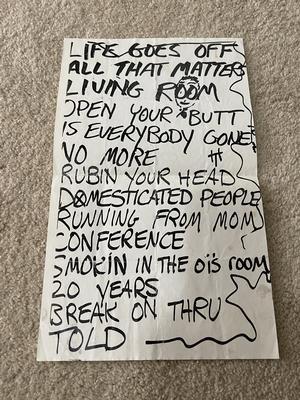 LIFE GOES OFF
ALL THAT MATTERS
LIVING ROOM
OPEN YOUR BUTT
IS EVERYBODY GONE
NO MORE
RUBIN YOUR HEAD
DOMESTICATED PEOPLE
RUNNING FROM MOM
CONFERENCE
SMOKIN IN THE
20 YEARS
BREAK ON THRU
TOLD